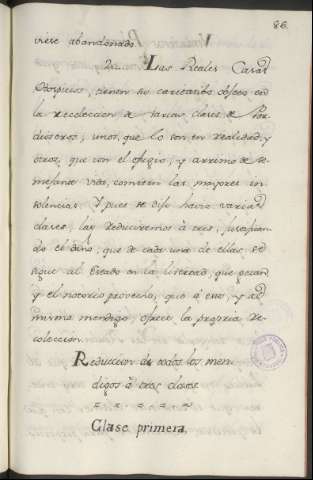 86.
viese abandonado.
2. Las Reales Casas
Hospicios, tienen su caritatibo objeto en
la recoleccion de varias clases de Por-
dioseros; unos, que lo son en realidad, y
otros, que con el oficio, y arrimo de se-
mejante vida, cometen las mayores in-
solencias. Y pues se dijo havia varias
clases, las reduciremos à tres, justifican-
do el daño, que de cada una de ellas, se
sigue al Estado en la libertad, que gozan
y el notorio provecho, que à este, y al
mismo mendigo, ofrece la propria re-
coleccion.
Reduccion de todos los men-
digos à tres clases.
Clase primera.